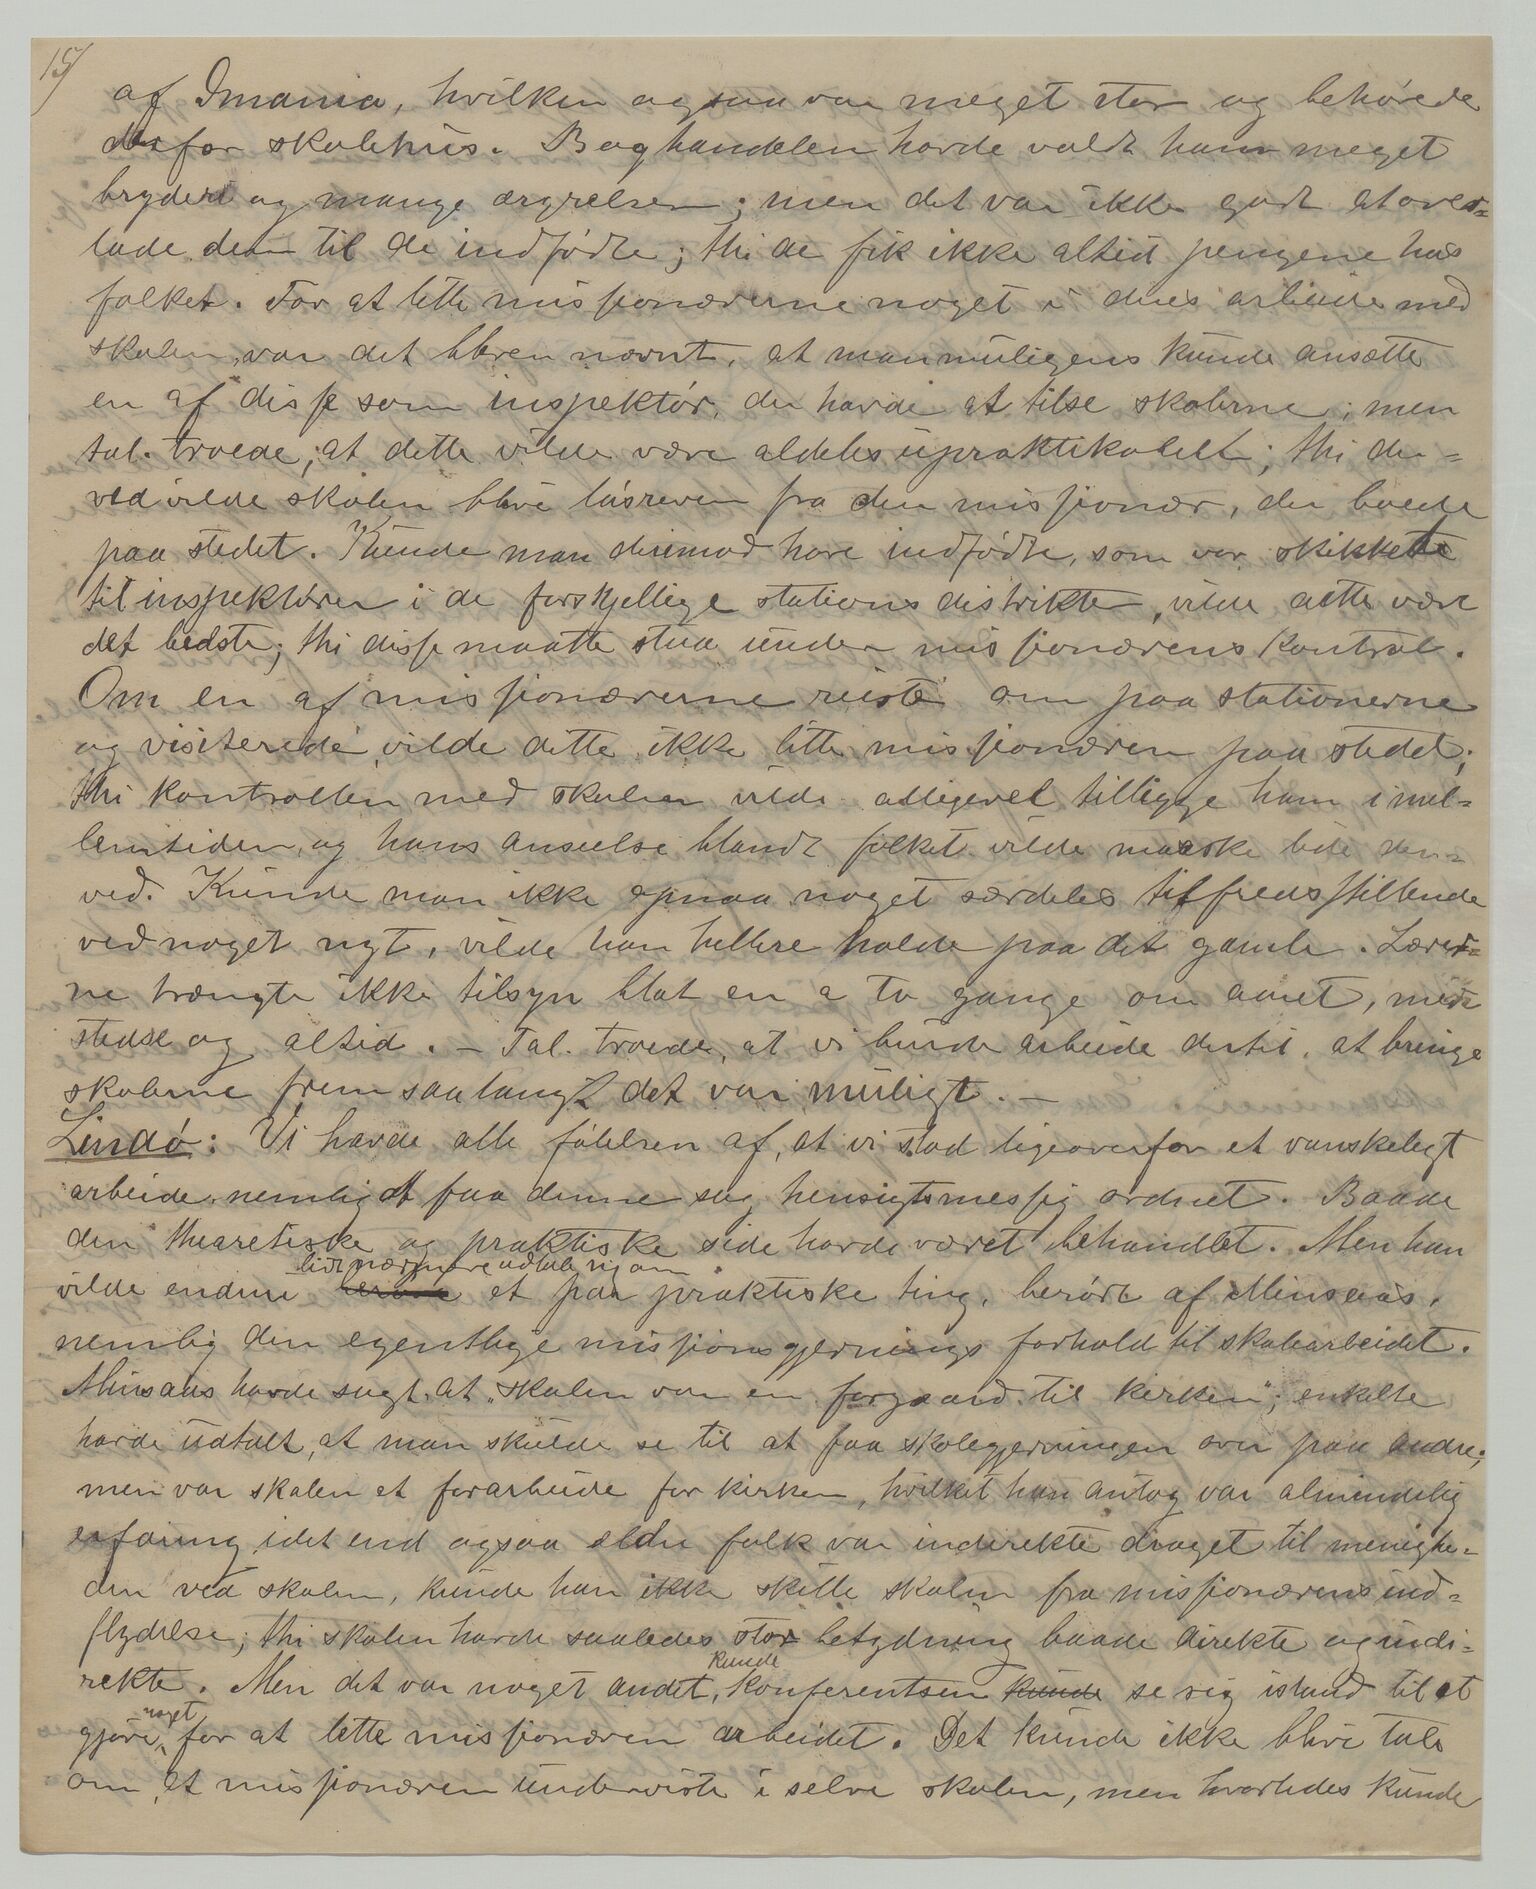 15/
af Imania, hvilken ogsaa var meget stor og behøvede
derfor skolehus. Boghandelen havde voldt ham meget
bryderi og mange ærgrelser; men det var ikke godt at over-
lade den til de indfødte; thi de fik ikke altid pengene hos
folket. For at lette missionærerne noget i deres arbeide med
skolen, var det bleven nævnt, at man muligens kunde ansætte
en af disse som inspektør, der havde at tilse skolerne; men
tal. troede, at dette vilde være aldeles upraktikabelt; thi der-
ved vilde skolen blive løsreven fra den missionær, der boede
paa stedet. Kunde man derimod have indfødte, som var skikkede
til inspektører i de forskjellige stationsdistrikter, vilde dette være
det bedste; thi disse maatte staa under missionærens kontrol.
Om en af missionærerne reiste om paa stationerne
og visiterede, vilde dette ikke lette missionæren paa stedet;
thi kontrollen med skolen vilde alligevel tilligge ham i mel-
lemtiden, og hans anseelse blandt folket vilde maaske lide der-
ved. Kunde man ikke opnaa noget særdeles tilfredsstillende
ved noget nyt, vilde han hellere holde paa det gamle. Lærer-
ne trængte ikke tilsyn blot en a to gange om aaret, men
stedse og altid. – Tal. troede, at vi burde arbeide dertil, at bringe
skolerne frem saalangt det var muligt. –
Lindø: Vi havde alle følelsen af, at vi stod ligeoverfor et vanskeligt
arbeide, nemlig at faa denne sag hensigtsmessig ordnet. Baade
den theoretiske og praktiske side havde været behandlet. Men han
lidt nærmere udtale sig om
vilde endnu berøre et par praktiske ting, berørt af Minsaas,
nemlig den egentlige missionsgjernings forhold til skolearbeidet.
Minsaas havde sagt, at „skolen var en forgaard til kirken"; enkelte
havde udtalt, at man skulde se til at faa skolegjerningen over paa andre;
men var skolen et forarbeide for kirken, hvilket han antog var almindelig
erfaring, idet end ogsaa ældre folk var indirekte draget til menighe-
den ved skolen, kunde han ikke skille skolen fra missionærens ind-
flydelse; thi skolen havde saaledes stor betydning baade direkte og indi-
rekte. Men det var noget andet, kunde konferentsen kunde se sig istand til at
gjøre noget for at lette missionæren arbeidet. Det kunde ikke blive tale
om, at missionæren underviste i selve skolen, men hvorledes kunde